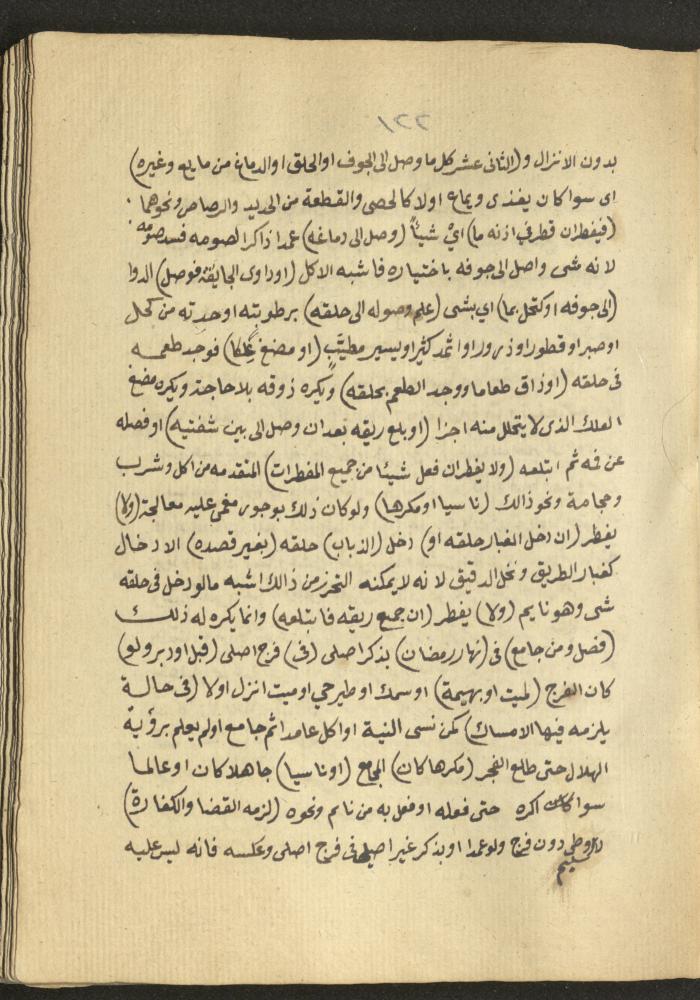 ١٢٢
بدون الانزال و(الثانى عشر كل ما وصل الى الجوف او الحلق او الدماغ من مايع وغيره)
اى سوا كان يغذى ويماع اولا كالحصى والقطعة من الحديد والرصاص ونحوهما
(فيفطر ان قطر فى اذنه ما) اى شيأ (وصل الى دماغه) عمدا ذاكرا لصومه فسد صومه
لانه شى واصل الى جوفه باختياره فاشبه الاكل (او داوى الجايفة فوصل) الدوا
(الى جوفه او كتحل بما) اى بشى (علم وصوله الى حلقه) برطوبته او حدته من كحل
او صبر او قطور او ذرور او اثمد كثير او يسير مطيب (او مضغ علكا) فوجد طعمه
فى حلقه (او ذاق طعاما ووجد الطعم بحلقه) ويكره ذوقه بلا حاجة ويكره مضغ
العلك الذى لا يتحلل منه اجزا (او بلع ريقه بعد ان وصل الى بين شفتيه) او فصله
عن فمه ثم ابتلعه (ولا يفطر ان فعل شيئا من جميع المفطرات) المتقدمه من اكل وشرب
وحجامة ونحو ذالك (ناسيا او مكرها) ولو كان ذلك بوجور مغمى عليه معالجة (ولا)
يفطر (ان دخل الغبار حلقه او) دخل (الذباب) حلقه (بغير قصده) الادخال
كغبار الطريق ونخل الدقيق لانه لا يمكنه التحرز من ذالك اشبه مالو دخل فى حلقه
شى وهو نايم (ولا) يفطر (ان جمع ريقه فابتلعه) وانما يكره له ذلك
(فصل ومن جامع) فى (نهار رمضان) بذكر اصلى (فى) فرج اصلى (قبل او دبر ولو)
كان الفرج (لميت او بهيمة) او سمك او طير حي او ميت انزل اولا (فى حالة
يلزمه فيها الامساك) كمن نسى النية او اكل عامدا ثم جامع او لم يعلم برؤية
الهلال حتى طلع الفجر (مكرها كان) المجامع (او ناسيا) جاهلا كان او عالما
سوا كان اكره حتى فعله او فعل به من نائم ونحوه (لزمه القضا والكفارة)
لا وطى دون فرج ولو عمدا او بذكر غير اصلى فى فرج اصلى وعكسه فانه ليس عليه